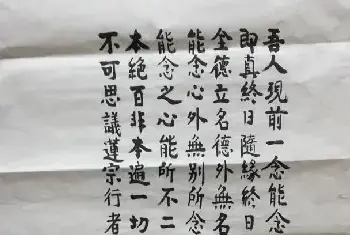 吾人現前一念能念
即真終日隨緣終日
全德立名德外無名
能念心外無別所念
能念之心能所不二
本絕百非本遍一切
不可思議蓮宗行者